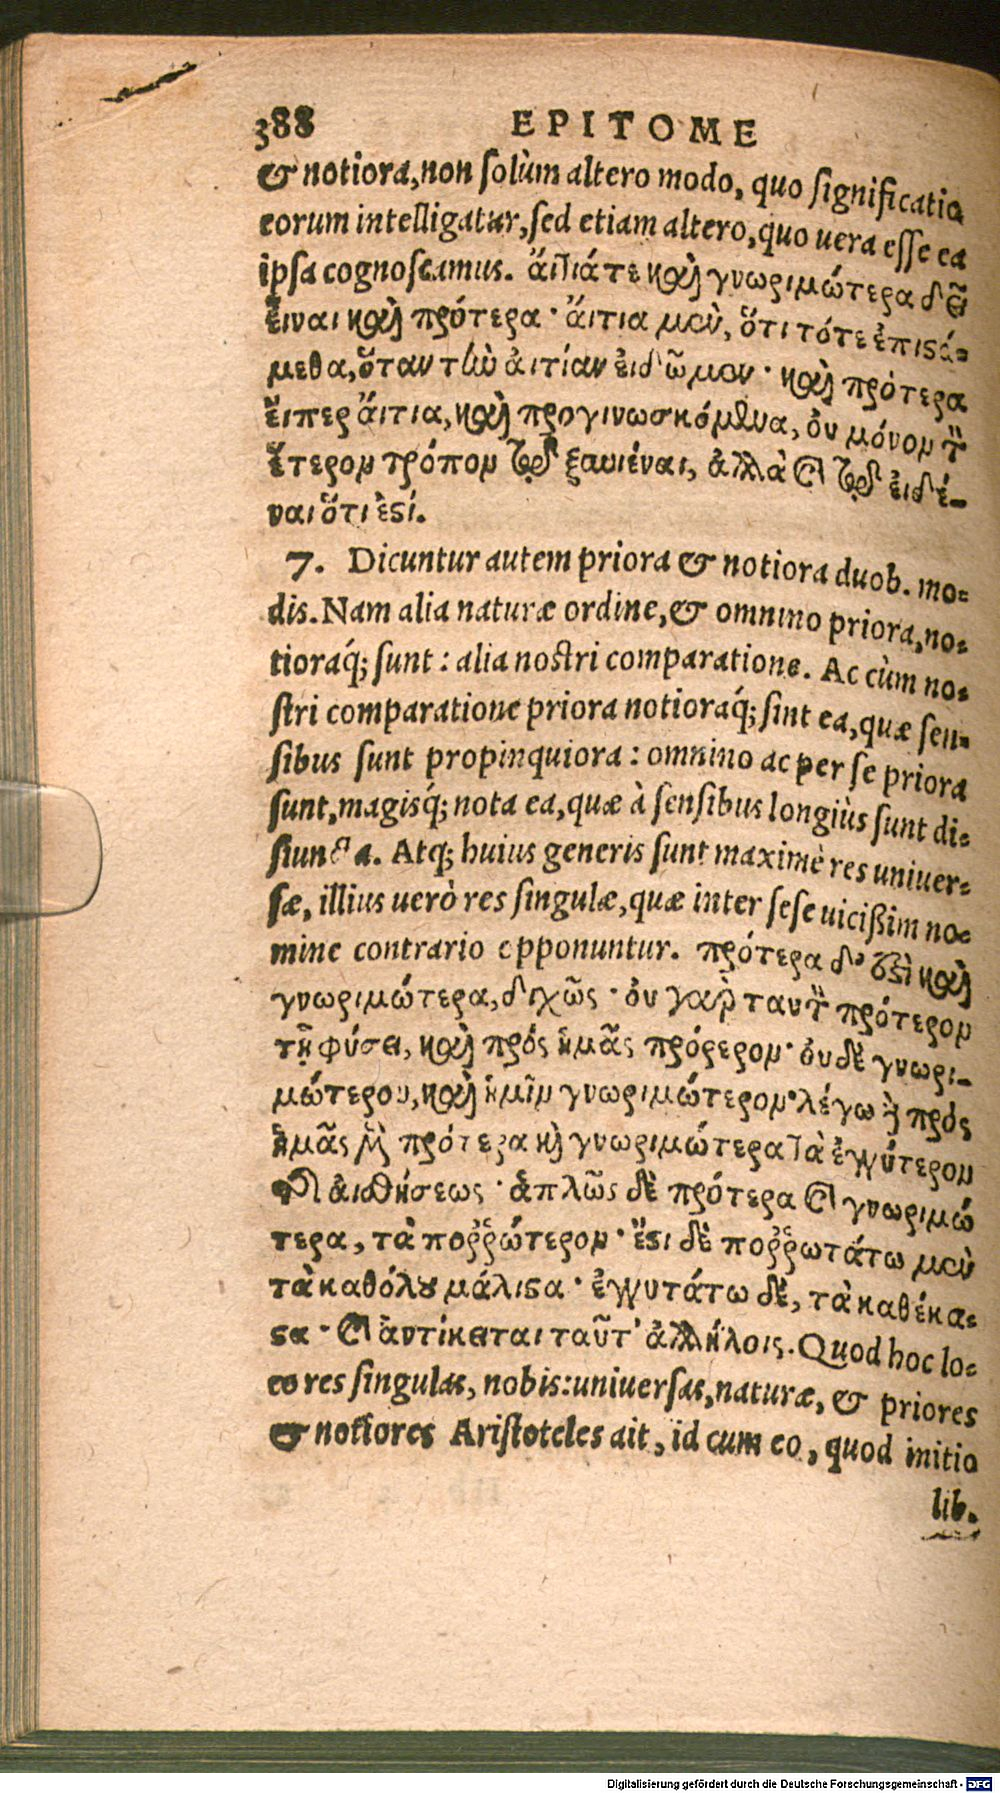 388 EPITOME
& notiora, non solùm altero modo, quo significatio
eorum intelligatur, sed etiam altero, quo uera esse ea
ipsa cognoscamus. ἄιτιάτε καὶ γνωριμώτερα δεῖ
εἶναι καὶ πρότερα· ἄιτια μὲν, ὅτι τότε ἐπιϛά=
μεθα, ὅταν τὴν ἀιτίαν ἐιδῶμεν· καὶ πρότερα
ἔιπερ ἄιτια, καὶ προγινωσκόμενα, ὀυ μόνον τὸν
ἕτερον τρόπον τῷ ξωιέναι, ἀλλὰ καὶ τῷ ἐιδέ-
ναι ὅτι ἐϛί.
7. Dicuntur autem priora & notiora duob. mo=
dis. Nam alia naturæ ordine, & omnino priora, no=
tioraq́; sunt: alia nostri comparatione. Ac cùm no=
stri comparatione priora notioraq́; sint ea, quæ sen=
sibus sunt propinquiora: omnino ac per se priora
sunt, magisq́; nota ea, quæ à sensibus longiùs sunt di=
siuncta. Atq; huius generis sunt maximè res uniuer=
sæ, illius uerò res singulæ, quæ inter sese uicißim no=
mine contrario opponuntur. πρότερα δ' ἐϛὶ καὶ
γνωριμώτερα, διχῶς· ὀυ γὰρ ταυτὸν πρότερον
τῇ φύσει, καὶ πρὸς ἡμᾶς πρόρερον· ὀυδὲ γνωρι-
μώτερον, καὶ ἡμῖν γνωριμώτερον· λέγω ἢ πρὸς
ἡμᾶς μὲν πρότερα κὴ γνωριμώτερα τὰ ἐγγύτερον
τῆς ἀισθήσεως· ἁπλῶς δὲ πρότερα καὶ γνωριμώ
τερα, τὰ ποῤῥώτερον· ἔϛι δὲ ποῤῥωτάτω μὲν
τὰ καθόλου μάλιϛα· ἐγγυτάτω δὲ, τὰ καθέκα=
ϛα· καὶ ἀντίκειται ταῦτ' ἀλλήλοις. Quod hoc lo=
co res singulas, nobis: uniuersas, naturæ, & priores
& notiores Aristoteles ait, id cum eo, quod initio
lib.
Digitalisierung gefördert durch die Deutsche Forschungsgemeinschaft - DFG